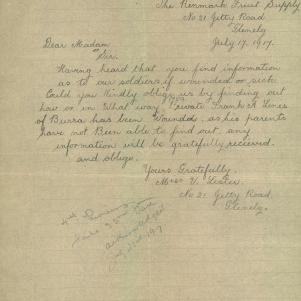 The Renmark Fruit Supply
No 21 Jetty Road
Glenelg
July 17. 1917.
Dear Madam
Sir.
Having heard that you find information
as to our soldiers if wounded or sick
Could you Kindly oblige us by finding out
how or in What way Private Frank H Lines
of Burra has been Wounded. as his parents
have not Been able to find out. any
information will be gratefully recieved.
and oblige.
Yours Gratefully.
Miss V. Lester
No 21 Jetty Road.
Glenelg.
acknowledged